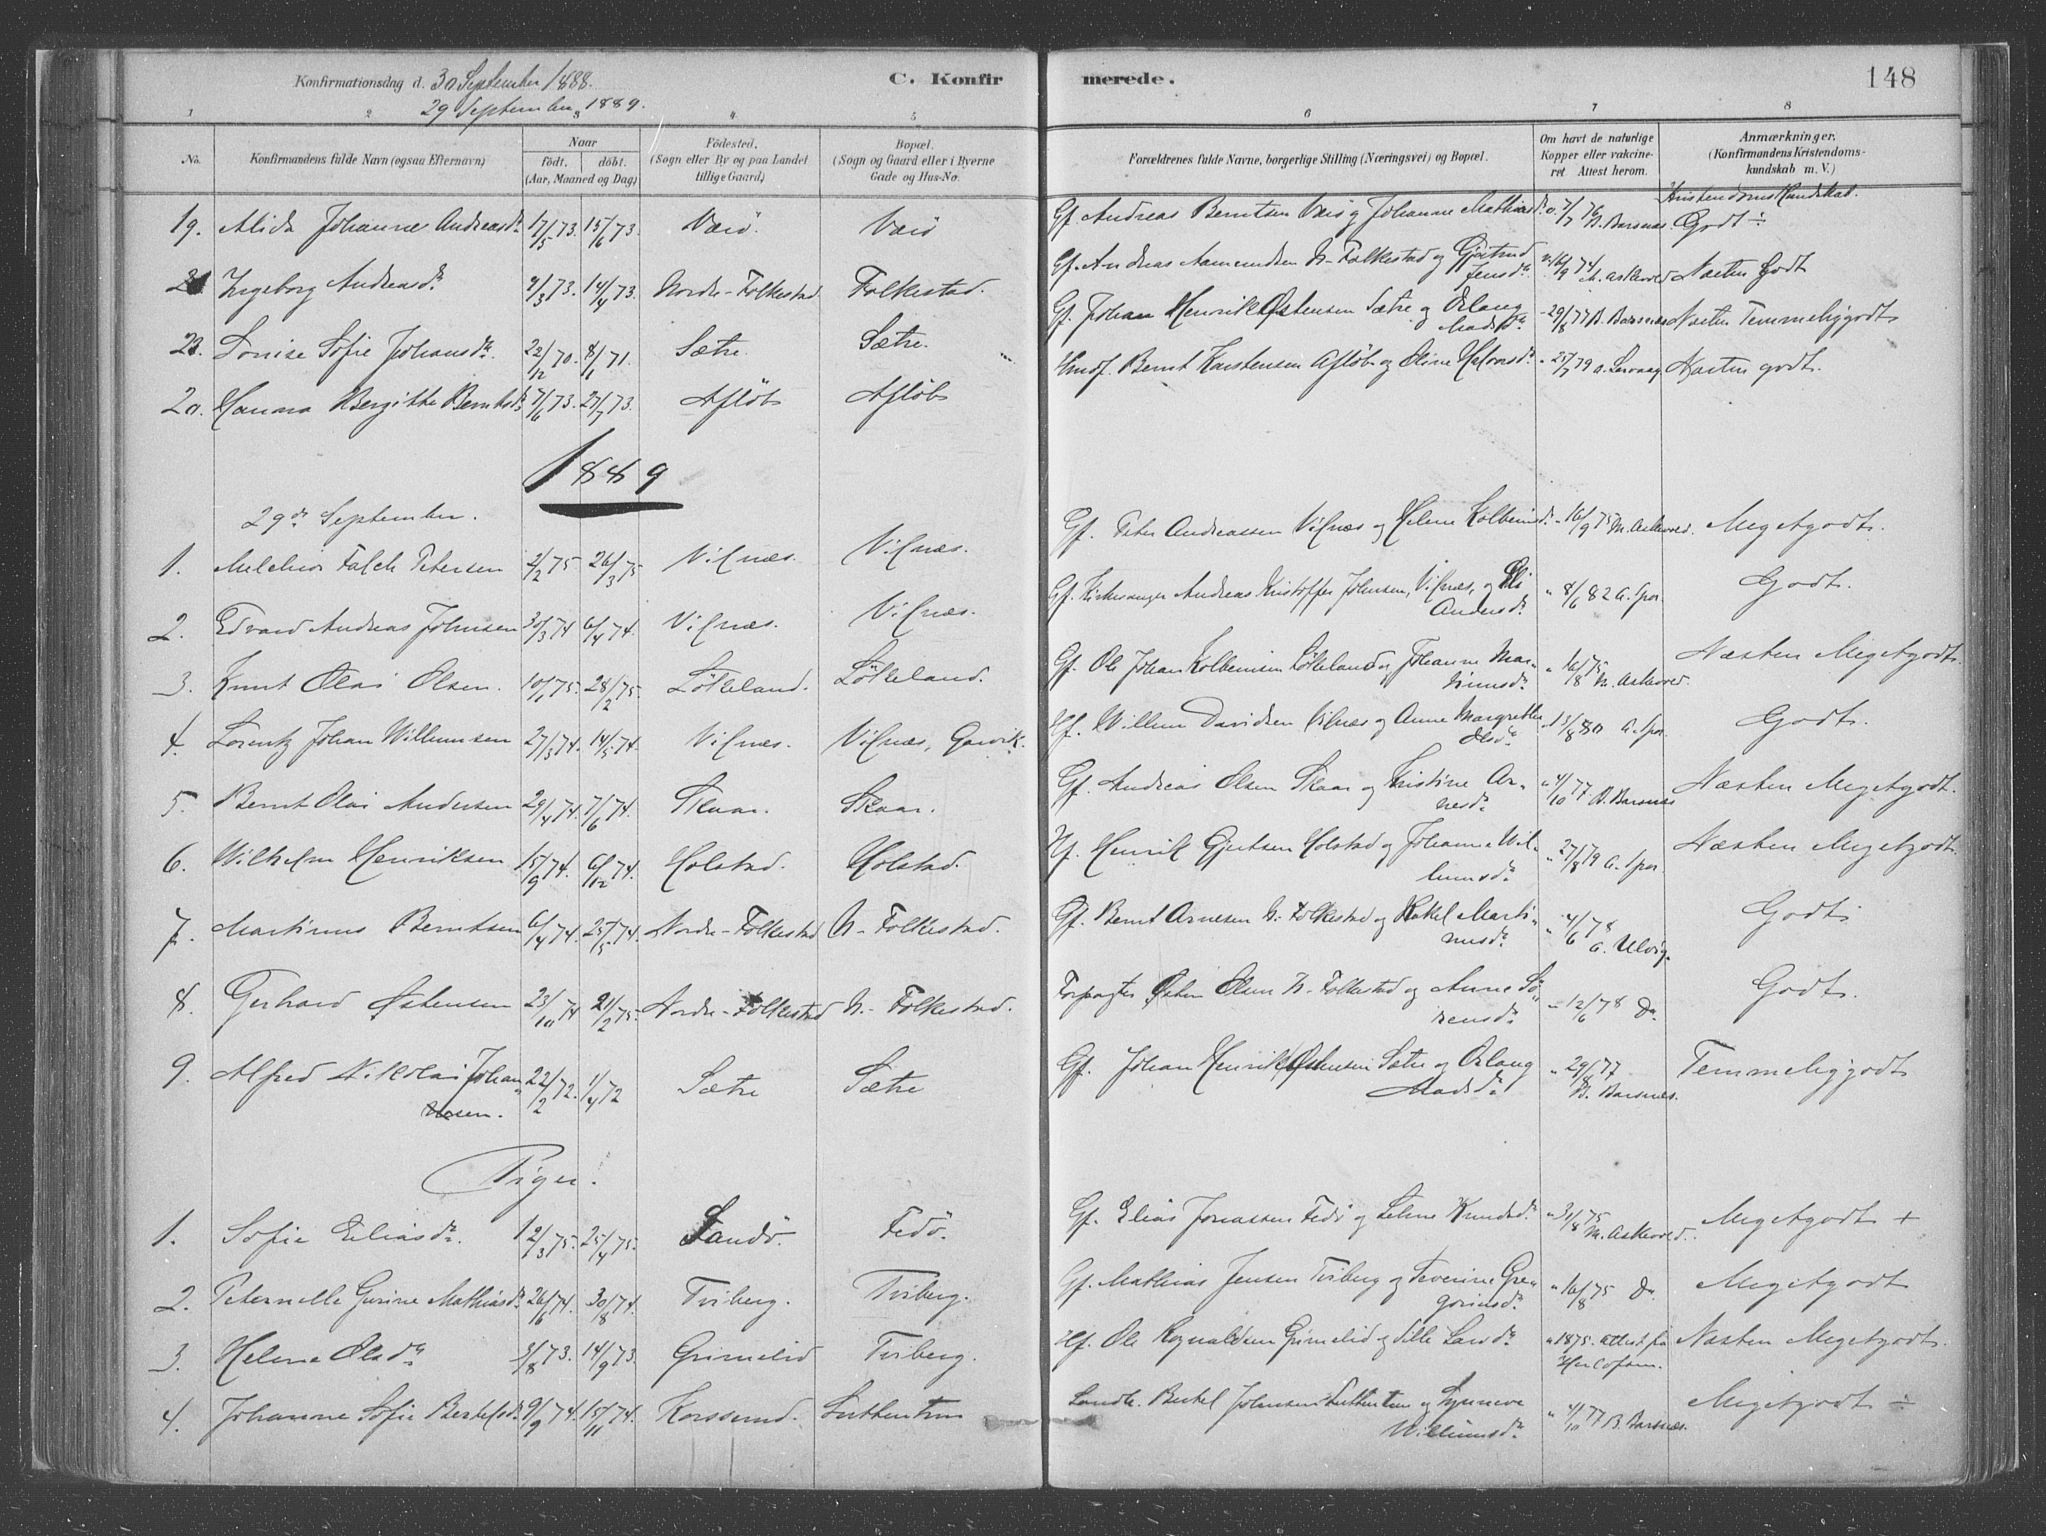 Konfirmationsdag d. 30 September 1888.
29 September 1889.
C. Konfirmerede.
148
1 2 3 4. 5. 6 7 8
No. Konfirmandens fulde Navn (ogsaa Efternavn) Naar födt. döbt. (Aar, Maaned og Dag) Födested. (Sogn eller By og paa Landet tillige Gaard) Bopæl. (Sogn og Gaard eller i Byerne Gade og Hus-No. Forældrenes fulde Navne, borgerlige Stilling (Næringsvei) og Bopæl. Om havt de naturlige Kopper eller vakcineret Attest herom. Anmærkninger. (Konfirmandens Kristendomskundskab m. V.)
Kristendomskundskab.
19. Alida Johannes Andreasdr. 17/5 73. 15/6 73 Værö. Værö Gf. Andreas Berntsen Værö og Johanne Mathiasdr. v. 7/7 76 B. Barsnæs. Godt ÷
Ingeborg Andreasdr. 9/3 73. 14/4 73. Nordre-Folkestad Folkestad. Gf. Andreas Aamundsen N-Folkestad og Gjertrud Jensdr. 16/9 74 M. Askevold Næsten Godt
Lovise Sofie Johansdr. 22/12 70. 8/1 71. Sætre. Sætre. Gf. Johan Henrik Østensen Sætre og Oslaug Madsdr. 29/8 77 B. Barsnæs Næsten Temmeliggodt
20. Hanna Bergitte Berntsdr. 7/6 73. 27/7 73. Aflöb Aflöb Hmdf. Bernt Karstensen Aflöb og Oline Halvorsdr. 25/7 79 Næsten godt.
1889
29de September.
1. Melchior Falch Petersen 2/2 75 26/3 75 Vilnæs. Vilnæs. Gf. Peter Andreassen Vilnæs og Helene Kolbeinsdr. 16/9 75 M. Askevold. Megetgodt.
2. Edvard Andreas Johnsen 30/3 74 6/4 74. Vilnæs. Vilnæs. Gf. Kirkesanger Andreas Kristoffer Johnsen, Vilnæs, og Eli Andersdr. 8/6 82 G. Spor. Godt.
3. Knut Olai Olsen. 10/1 75. 28/2 75. Lökkeland. Lökkeland. Gf. Ole Johan Kolbeinsen Lökkeland og Johanne Martinusdr. 16/8 75 M. Askevold. Næsten Megetgodt.
4. Lorentz Johan Willumsen 27/3 74. 14/5 74. Vilnæs. Vilnæs, Gjervik. Hf. Willum Davidsen Vilnæs og Anne Margrethe Olsdr. 13/8 80 G. Spor. Godt.
5. Bernt Olai Andersen 29/4 74. 7/6 74. Skaar. Skaar. Gf. Andreas Olsen Skaar og Kristine Arnesdr. 4/10 77 B. Barsnæs Næsten Megetgodt.
6. Wilhelm Henriksen 15/9 74. 6/12 74. Holstad. Holstad. Hf. Henrik Gjertsen Holstad og Johanne Willumsdr. 27/8 79 G. Spor. Næsten Megetgodt.
7. Martinus Berntsen 6/4 74. 25/5 74. Nordre-Folkestad N-Folkestad. Gf. Bernt Arnesen N-Folkestad og Rakel Martinusdr. 4/6 78 G. Ulvig. Godt
8. Gerhard Østensen 23/10 74 21/2 75. Nordre-Folkestad N-Folkestad. Forpagter Østen Olsen N-Folkestad og Anne Sörensdr. 12/6 78 Do. Godt.
9. Alfred Nikolai Johannesen. 22/2 72. 1/4 72 Sætre Sætre Gf. Johan Henrik Østensen Sætre og Oslaug Madsdr. 29/8 77 B. Barsnæs. Temmeliggodt
Piger.
1. Sofie Eliasdr. 12/3 75. 25/4 75. Sandö. Fedö. Gf. Elias Jonassen Fedö og Seline Knudsdr. 31/8 75 M. Askevold. Megetgodt +
2. Peternelle Gurine Mathiasdr. 26/6 74. 30/8 74. Tviberg. Tviberg. Gf. Mathias Jensen Tviberg og Severine Gregoriusdr. 16/8 75 Do. Megetgodt
3. Helene Olsdr. 3/8 73. 14/9 73. Grimelid Tviberg. Hf. Ole Rognaldsen Grimelid og Sille Larsdr. 1875. Attest fra Næsten Megetgodt.
4. Johanne Sofie Bertelsdr. 9/9 74. 15/11 74. Korssund. Lutentun Landh. Bertel Johnsen Lutentun og Synneve Willumsdr. 4/10 77 B. Barsnæs. Megetgodt ÷